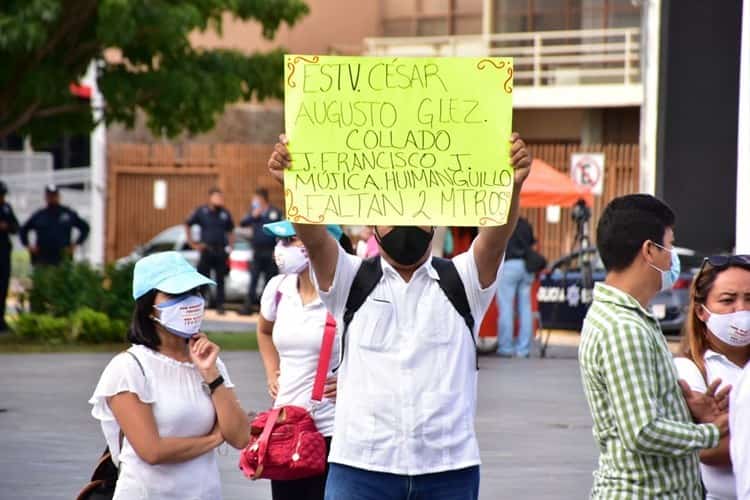 ESTV. CÉSAR
AUGUSTO GLEZ.
COLLADO
J. FRANCISCO J.
MÚJICA. HUIMANGÜILLO
FALTAN 2 MTROS